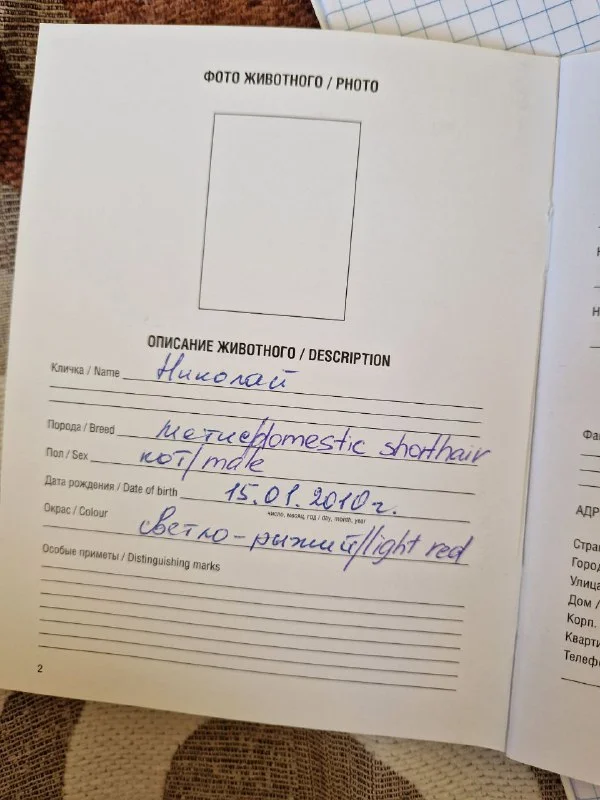 ФОТО ЖИВОТНОГО / PHOTO
ОПИСАНИЕ ЖИВОТНОГО / DESCRIPTION
Кличка / Name Николай
Порода / Breed метис/domestic shorthair
Пол / Sex кот/male
Дата рождения / Date of birth 15.01.2010 г.
число, месяц, год / day, month, year
Окрас / Colour светло-рыжий/light red
Особые приметы / Distinguishing marks
2
АДР
Стра
Город
Улица
Дом /
Корп.
Кварти
Телеф